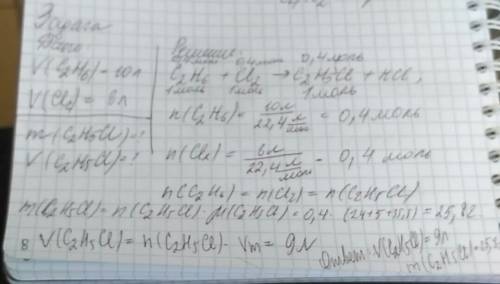 Задача
Дано
V(C2H6) = 10л
V(Cl2) = 8л
m(C2H5Cl)-?
V(C2H5Cl)-?
Решение:
0,4моль 0,4моль
C2H6 + Cl2 → C2H5Cl + HCl;
1моль 1моль 1моль
n(C2H6) = 10л / 22,4 л/моль = 0,4 моль
n(Cl2) = 8л / 22,4 л/моль = 0,4 моль
n(C2H6) = n(Cl2) = n(C2H5Cl)
m(C2H5Cl) = n(C2H5Cl)·M(C2H5Cl) = 0,4·(24+5+35,5) = 25,8г
8 V(C2H5Cl) = n(C2H5Cl)· Vm = 9л
Ответ: V(C2H5Cl) = 9л
m(C2H5Cl) = 25,8